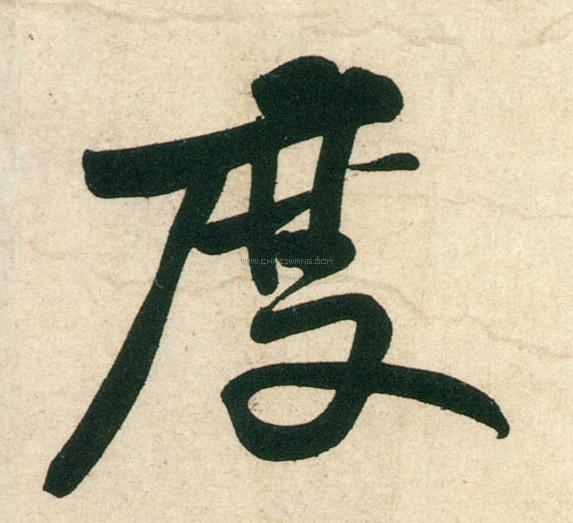 度
WWW.CHAZIWANG.COM